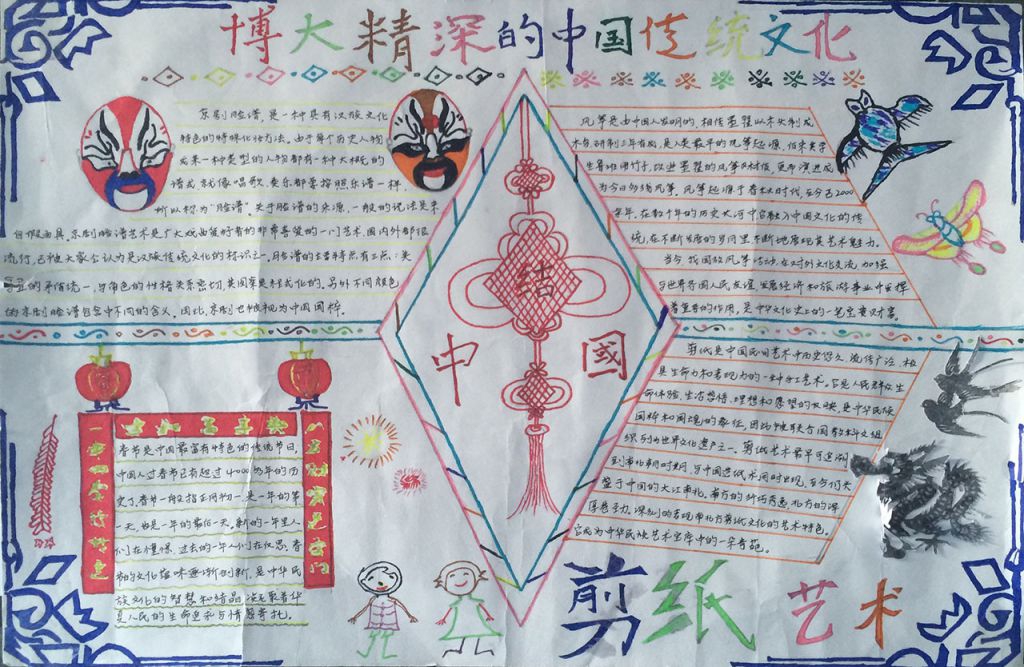 博大精深的中国传统文化
京剧脸谱,是一种具有汉族文化
特色的特殊化妆方法。由于每个历史人物
或某一种类型的人物都有一种大概的
谱式,就像唱歌、奏乐都要按照乐谱一样,
所以称为“脸谱”。关于脸谱的来源,一般的说法是来
自假面具。京剧脸谱艺术是广大戏曲爱好者的非常喜爱的一门艺术,国内外都很
流行,已被大家公认为是汉族传统文化的标识之一。脸谱的主要特点有三点:美
的矛盾统一,与角色的性格关系密切,其图案是程式化的。另外不同颜色
的京剧脸谱包含中不同的含义。因此,京剧也被视为中国国粹。
风筝是由中国人发明的,相传墨翟以木头制成
木鸟,研制三年有成,是人类最早的风筝起源。后来其学
生鲁班用竹子,改进墨翟的风筝材质,更而演进成
为今日多线风筝。风筝起源于春秋时代,至今已2000
余年。在数千年的历史大河中它融入中国文化的传
统,在不断发展的岁月里,不断地展现其艺术魅力。
当今,我国放风筝活动,在对外文化交流,加强
与世界各国人民友谊,发展经济和旅游事业中发挥
着重要的作用,是中华文化史上的一笔宝贵财富。
结
中
國
剪纸是中国民间艺术中历史悠久、流传广泛、极
具生命力和表现力的一种手工艺术。它是人民群众生
命体验、生活感悟、理想和愿望的反映,是中华民族
国粹和国魂的象征,因此被联合国教科文组
织列为世界文化遗产之一。剪纸艺术最早可追溯
到南北朝时期,与中国造纸术同时出现,至今仍大
盛于中国的大江南北。南方的纤巧秀逸,北方的浑
厚苍劲,深刻的表现南北方剪纸文化的艺术特色。
它成为中华民族艺术宝库中的一朵奇葩。
春节是中国最富有特色的传统节日,
中国人过春节已有超过4000多年的历
史了。春节一般指正月初一,是一年的第
一天,也是一年的最后一天。新的一年里人
们在憧憬,过去的一年人们在反思。春
节的文化韵味逐渐创新,是中华民
族文化的智慧和结晶,凝聚着华
夏人民的生命追求与情感寄托。
剪纸艺术